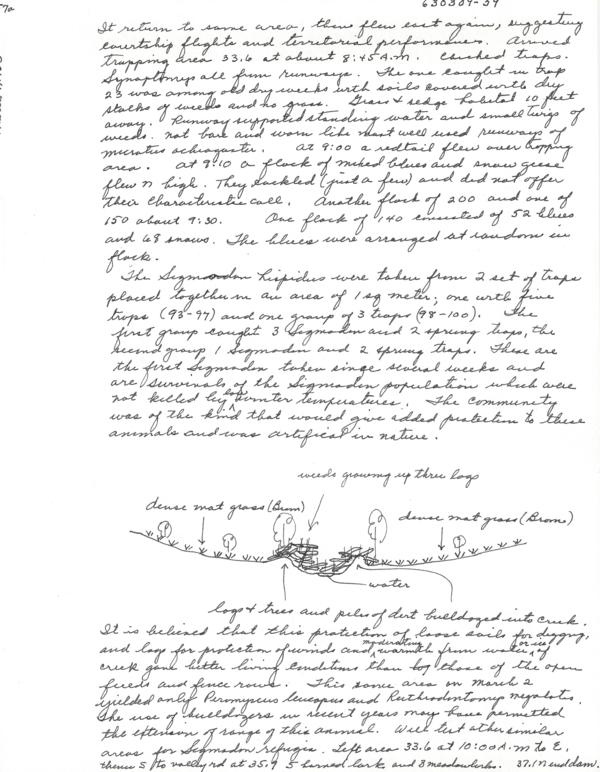 630309-39
It return to same area, then flew east again, suggesting
courtship flights and territorial performances. Arrived
trapping area 33.6 at about 8:45 A.M. Checked traps.
Synaptomys all from runways. The one caught in trap
23 was among old dry weeks with soils covered with dry
stalks of weeds and no grass. Grass & sedge habitat 10 feet
away. Runway supported standing water and small twigs of
weeds. not bare and worn like most well used runways of
microtus ochrogaster. At 9:00 a redtail flew over trapping
area. at 9:10 a flock of mixed blues and snow geese
flew N high. They cackled (just a few) and did not offer
their characteristic call. Another flock of 200 and one of
150 about 9:30. One flock of 140 consisted of 52 blues
and 68 snows. The blues were arranged at random in
flock.
The Sigmodon hispidus were taken from 2 set of traps
placed together in an area of 1 sq meter; one with five
traps (93-97) and one group of 3 traps (98-100). The
first group caught 3 Sigmodon and 2 sprung traps, the
second group 1 Sigmodon and 2 sprung traps. These are
the first Sigmodon taken singe several weeks and
are survivals of the Sigmodon population which were
not killed by low winter temperatures. The community
was of the kind that would give added protection to these
animals and was artifical in native.
weeds growing up thru logs
dense mat grass (Brom)
dense mat grass (Brome)
water
logs & trees and piles of dirt bulldozed into creek.
It is believed that this protection of loose soils for digging,
and logs for protection of winds and moderating warmth from water or ice of
creek gave better living conditions than those of the open
fields and fence rows. This same area on March 2
yielded only Peromyscus leucopus and Reithrodontomys megalotis.
The use of bulldozers in recent years may have permitted
the extension of range of this animal. Will test other similar
areas for Sigmodon refugia. Left area 33.6 at 10:00 A.M to E.
thence S to valley rd at 35.9 5 horned lark and 3 meadowlarks. 37.1 New dam.